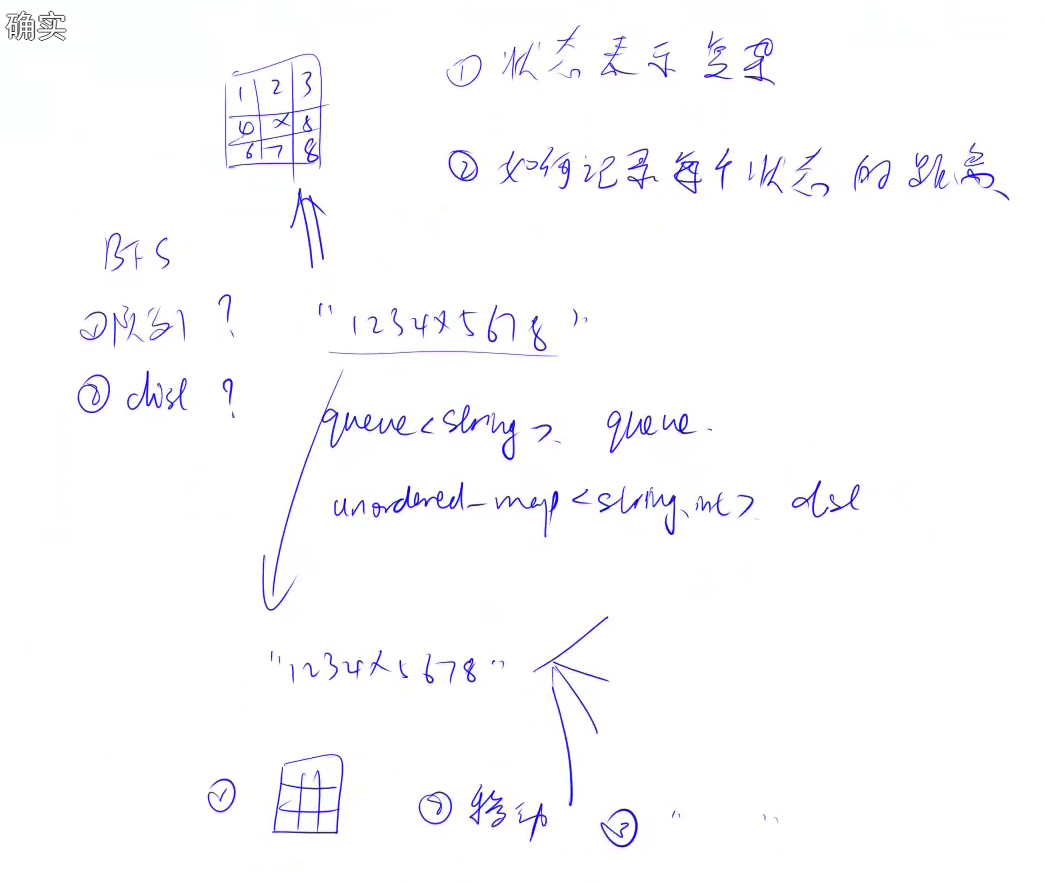 确实
① 状态表示复杂
1 2 3
4 x 8
6 7 8
② 如何记录每个状态的距离
BFS
① 队列 ?
"1234x5678"
② dist ?
queue<string> queue.
unordered_map<string, int> dist
"1234x5678"
① ② 移动 ③ " "